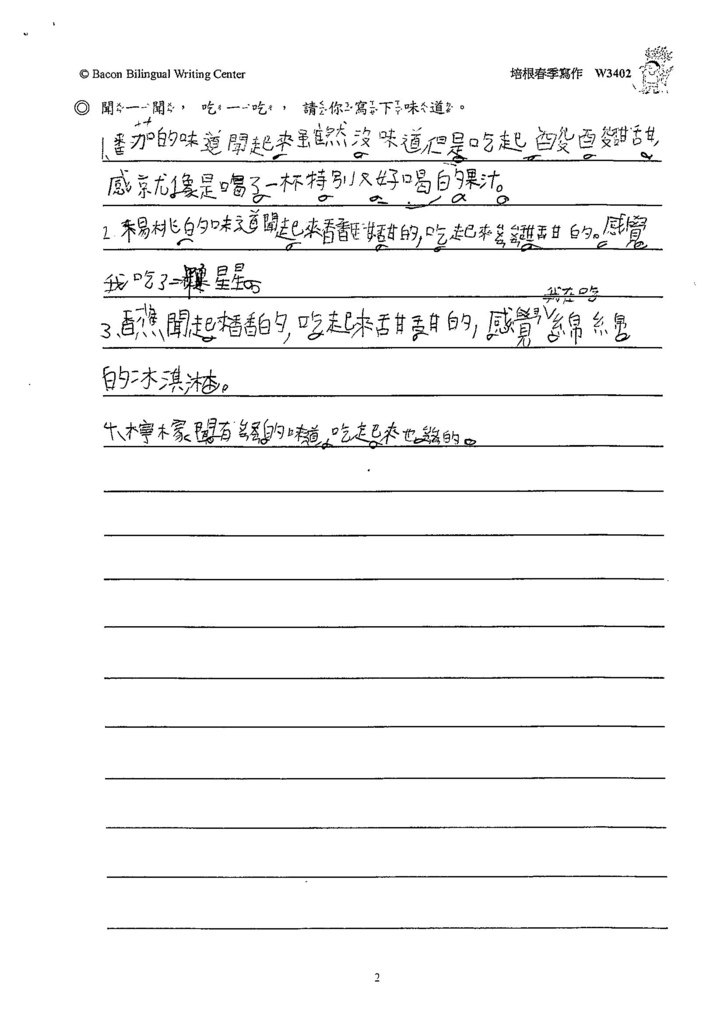 © Bacon Bilingual Writing Center
培根春季寫作 W3402
◎ 聞一聞，吃一吃，請你寫下味道。
1.番茄的味道聞起來雖然沒味道但是吃起酸酸甜甜
感就像是喝了一杯特別又好喝的果汁。
2.楊桃的味道聞起來香香甜甜的,吃起來甜的。感覺
我吃了一顆星星。
我在吃
3.香蕉聞起來香香的,吃起來甜甜的,感覺綿綿
的冰淇淋。
4.檸檬聞有酸酸的味道,吃起來也酸的。
2